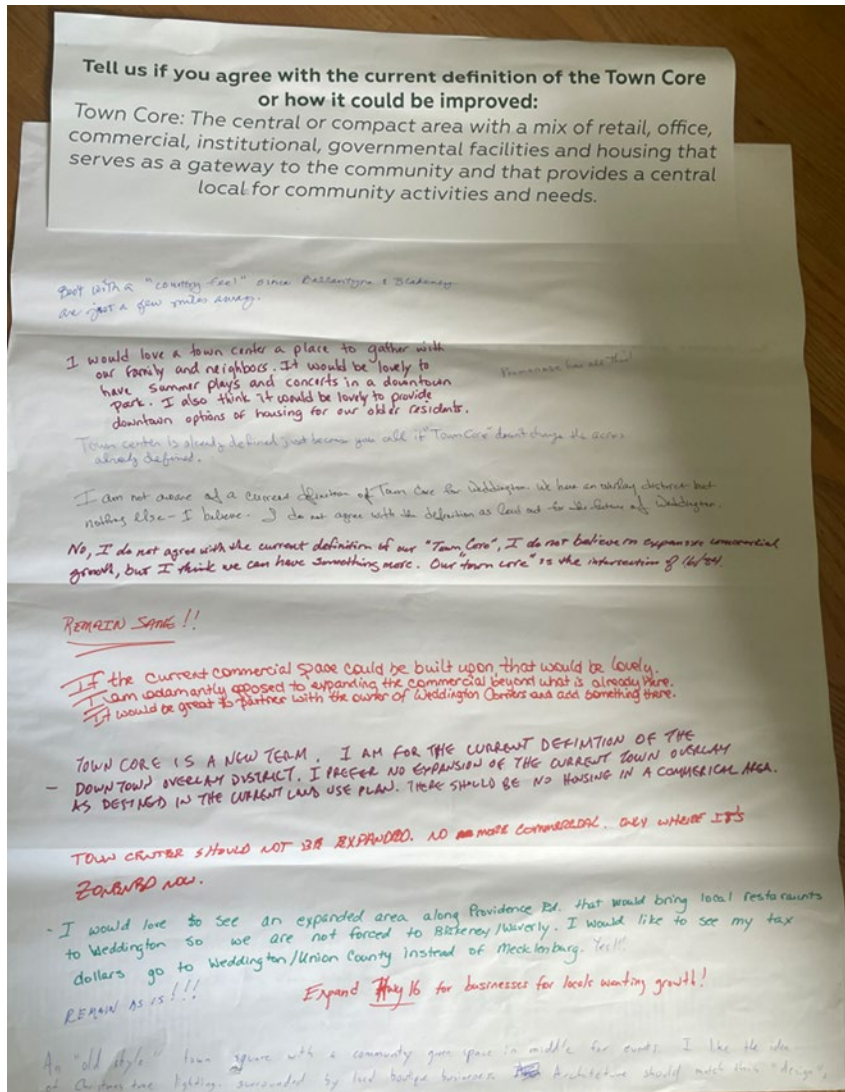 Tell us if you agree with the current definition of the Town Core
or how it could be improved:
Town Core: The central or compact area with a mix of retail, office,
commercial, institutional, governmental facilities and housing that
serves as a gateway to the community and that provides a central
local for community activities and needs.
with a "country feel" since Ballantyne & Blakeney
are just a few miles away.
I would love a town center a place to gather with
our family and neighbors. It would be lovely to
have summer plays and concerts in a downtown
park. I also think it would be lovely to provide
downtown options of housing for our older residents.
Promenade has all this!
Town center is already defined just because you call it "Town Core" doesn't change the
already defined.
I am not aware of a current definition of Town Core for Weddington. We have an overlay district but
nothing else - I believe. I do not agree with the definition as laid out for the future of Weddington.
No, I do not agree with the current definition of our "Town Core", I do not believe in expansive commercial
growth, but I think we can have something more. Our "town core" is the intersection of 16/84.
REMAIN SAME!!
If the current commercial space could be built upon that would be lovely.
I am adamantly opposed to expanding the commercial beyond what is already here.
It would be great to partner with the owner of Weddington Corners and add something there.
TOWN CORE IS A NEW TERM. I AM FOR THE CURRENT DEFINITION OF THE
- DOWNTOWN OVERLAY DISTRICT. I PREFER NO EXPANSION OF THE CURRENT TOWN OVERLAY
AS DEFINED IN THE CURRENT LAND USE PLAN. THERE SHOULD BE NO HOUSING IN A COMMERICAL AREA.
TOWN CENTER SHOULD NOT BE EXPANDED. NO MORE COMMERCIAL. ONLY WHERE IT'S
ZONED NOW.
- I would love to see an expanded area along Providence Rd. that would bring local restaraunts
to Weddington so we are not forced to Blakeney/Waverly. I would like to see my tax
dollars go to Weddington/Union County instead of Mecklenburg. Yes!!
REMAIN AS IS!!!
Expand Hwy 16 for businesses for locals wanting growth!
An "old style" town square with a community green space in middle for events. I like the idea
of Christmas time lighting, surrounded by local boutique businesses. Architecture should match this "design".